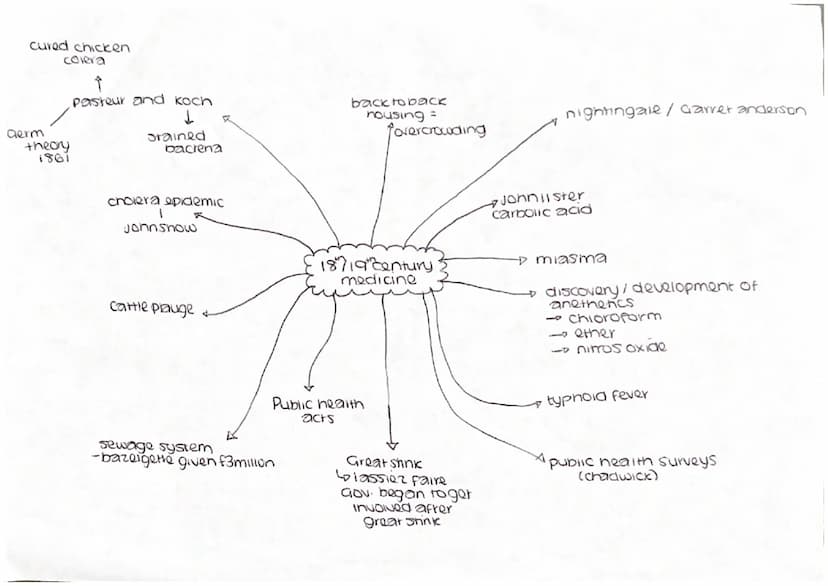 cured chicken
colera
Pasteur and Koch
Germ
theory
1861
stained
bacteria
back to back
housing =
overcrowding
nightingale / Garret anderson
cholera epidemic
john snow
john lister
carbolic acid
18th/19th century
medicine
miasma
discovery / development of
anethetics
→ chloroform
→ ether
→ nitros oxide
cattle plauge
Public health
acts
typhoid fever
sewage system
- bazelgette given £3million
Great stink
↳ lassiez faire
Gov. began to get
involved after
great stink
public health surveys
(chadwick)